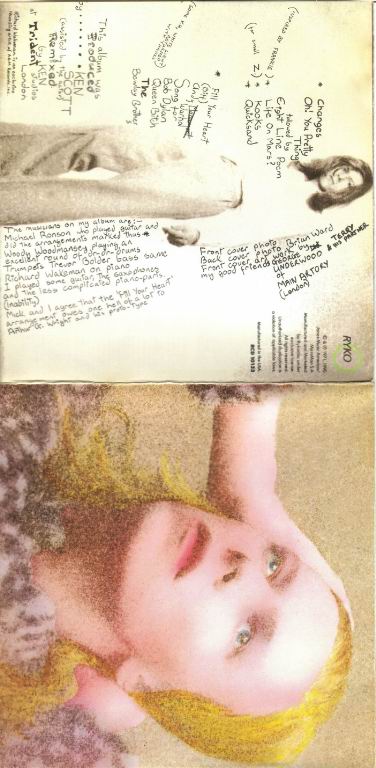 * Changes
Oh! You Pretty
Things
followed by
Eight Line Poem
Life On Mars?
+ Kooks
* Quicksand
(inspired by FRANKIE)
(for small Z)
* Fill Your Heart
(only)
Andy
Warhol
Song for
Bob Dylan
Queen Bitch
The
Bewlay Brothers
This album was
Produced
by
KEN
SCOTT
(assisted by the actor)
Remixed
by KEN
at Trident studios
London
The musicians on my album are:-
Michael Ronson who played guitar and
did the arrangements marked thus *
Woody Woodmansey playing an
excellent round of on-on-drums
Trumpets Trevor Bolder bass same
Richard Wakeman on piano
I played some guitar, the saxophones
and the less complicated piano-parts
(inability)
Mick and I agree that the 'Fill Your Heart'
arrangement owes one hell of a lot to
Arthur G. Wright and his proto-type.
Front cover photo Brian Ward
Back cover photo
Front cover art work by TERRY
my good friends GEORGE & his PARTNER
UNDERWOOD
of
MAIN ARTORY
(London)
RYKO
Manufactured in the USA
RCD 10133